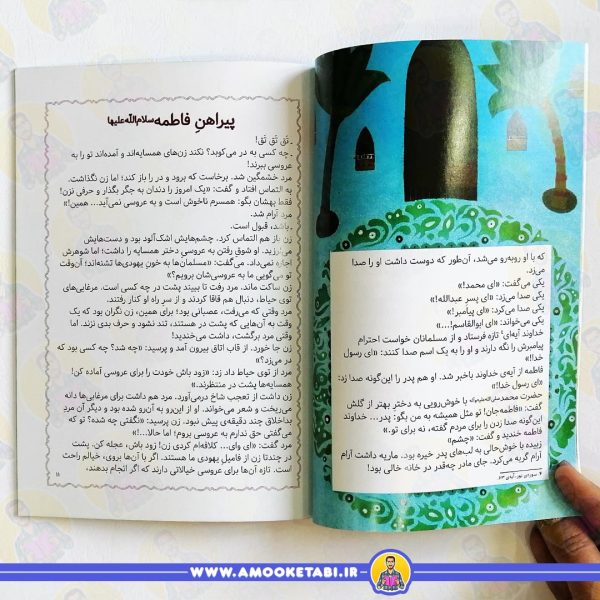 که با او روبه‌رو می‌شد، آن‌طور که دوست داشت او را صدا
می‌زد.
یکی می‌گفت: «ای محمد!»
یکی صدا می‌زد: «ای پسر عبدالله!»
یکی صدا می‌کرد: «ای پیامبر!»
یکی می‌خواند: «ای ابوالقاسم!...»
خداوند آیه‌ای۲ تازه فرستاد و از مسلمانان خواست احترام
پیامبرش را نگه دارند و او را به یک اسم صدا کنند: «ای رسول
خدا!»
فاطمه از آیه‌ی خداوند باخبر شد. او هم پدر را این‌گونه صدا زد:
«ای رسول خدا!»
حضرت محمد با خوش‌رویی به دختر بهتر از گلش
گفت: «فاطمه‌جان! تو مثل همیشه به من بگو: پدر... خداوند
این‌گونه صدا زدن را برای مردم گفته، نه برای تو.»
فاطمه خندید و گفت: «چشم»
زبیده با خوش‌حالی به لب‌های پدر خیره بود. ماریه داشت آرام
آرام گریه می‌کرد. جای مادر چه‌قدر در خانه خالی بود!
۲. سوره‌ی نور، آیه‌ی ۶۳
پیراهنِ فاطمه سلام‌الله‌علیها
ـ تَق تَق تَق!
ـ چه کسی به در می‌کوبد؟ نکند زن‌های همسایه‌اند و آمده‌اند تو را به
عروسی ببرند!
مرد خشمگین شد. برخاست که برود و در را باز کند؛ اما زن نگذاشت.
به التماس افتاد و گفت: «یک امروز را دندان به جگر بگذار و حرفی نزن!
فقط بهشان بگو: همسرم ناخوش است و به عروسی نمی‌آید... همین!»
مرد آرام شد.
ـ باشد، قبول است.
زن باز هم التماس کرد. چشم‌هایش اشک‌آلود بود و دست‌هایش
می‌لرزید. او شوق رفتن به عروسی دختر همسایه را داشت؛ اما شوهرش
اجازه نمی‌داد. می‌گفت: «مسلمان‌ها به خونِ یهودی‌ها تشنه‌اند؛ آن‌وقت
تو می‌گویی ما به عروسی‌شان برویم؟»
زن ساکت ماند. مرد رفت تا ببیند پشت در چه کسی است. مرغابی‌های
توی حیاط، دنبال هم قاقا کردند و از سر راه او کنار رفتند.
مرد وقتی که می‌رفت، عصبانی بود؛ برای همین، زن نگران بود که یک
وقت به آن‌هایی که پشت در هستند، تند نشود و حرف بدی نزند. اما
وقتی مرد برگشت، داشت می‌خندید!
زن جا خورد. از قاب اتاق بیرون آمد و پرسید: «چه شد؟ چه کسی بود که
در می‌زد؟»
مرد از توی حیاط داد زد: «زود باش خودت را برای عروسی آماده کن!
همسایه‌ها پشت در منتظرند.»
زن داشت از تعجب شاخ درمی‌آورد. مرد هم داشت برای مرغابی‌ها دانه
می‌ریخت و شعر می‌خواند. او از این‌رو به آن‌رو شده بود و دیگر آن مرد
بداخلاق چند دقیقه‌ی پیش نبود. زن پرسید: «نگفتی چه شده؟ تو که
می‌گفتی حق ندارم به عروسی بروم؛ اما حالا...!»
مرد گفت: «ای وای... کلافه‌ام کردی زن! زود باش، عجله کن. پشت
در چندتا زن از فامیل یهودی ما هستند. اگر با آن‌ها بروی، خیالم راحت
است. تازه آن‌ها برای عروسی خیالاتی دارند که اگر انجام بدهند،
۱۱
WWW.AMOOKETABI.IR